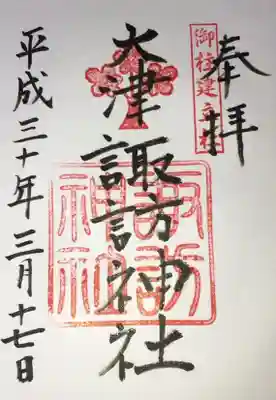 奉拝
御柱建立社
大津諏訪神社
諏訪
神社
平成三十年三月十七日